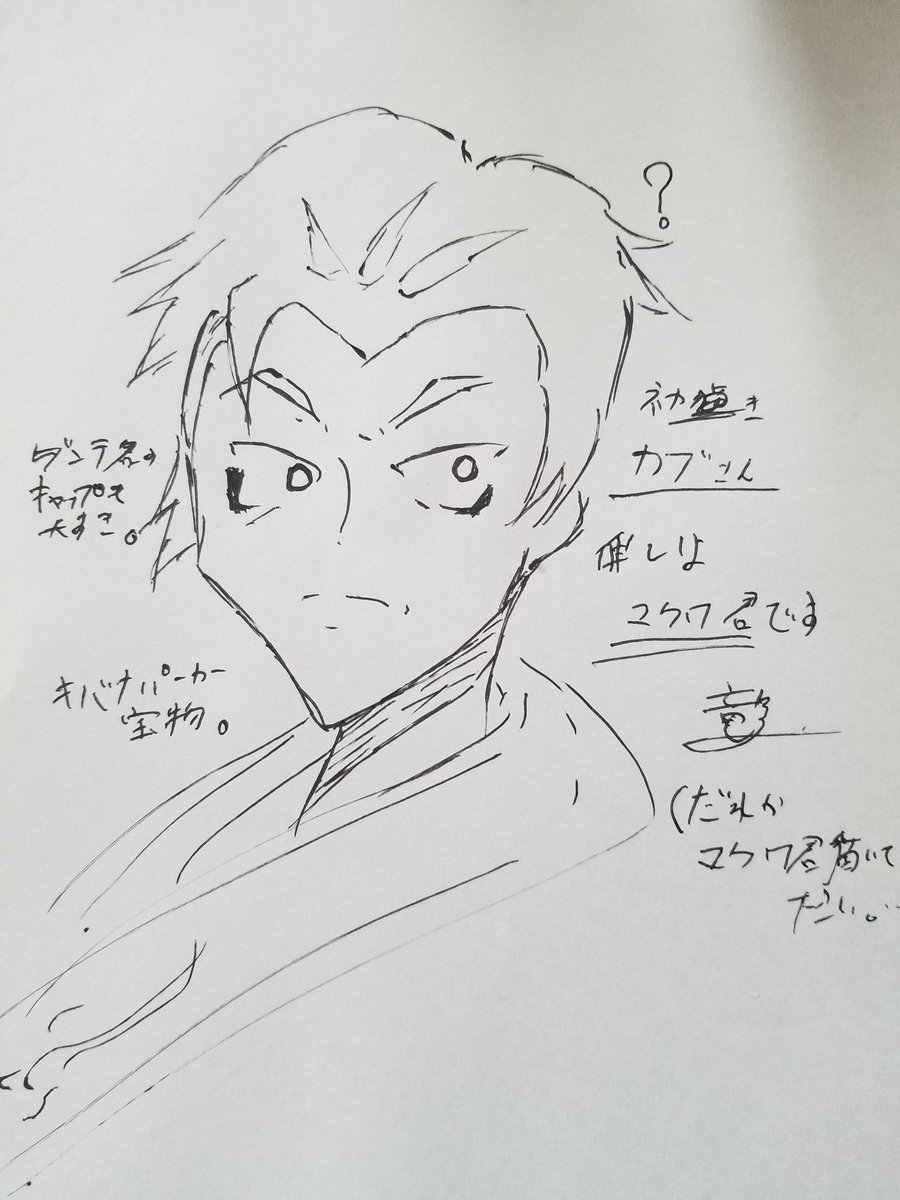 ?
初描き
カブさん
推しは
マクワ君です
竜
(だれか
マクワ君描いて
ださい。…
ダンテ君の
キャップも
大すき。
キバナパーカー
宝物。